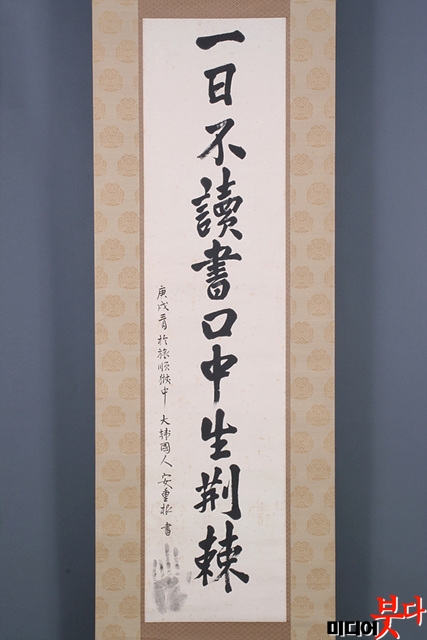 一日不讀書口中生荊棘
庚戌三月 於旅順獄中 大韓國人 安重根 書
미디어붓다